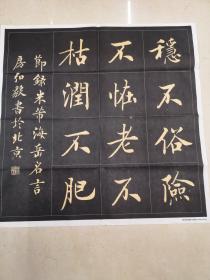 穩不俗險
不怯老不
枯潤不肥
節錄米芾海岳名言
房弘毅書於北京